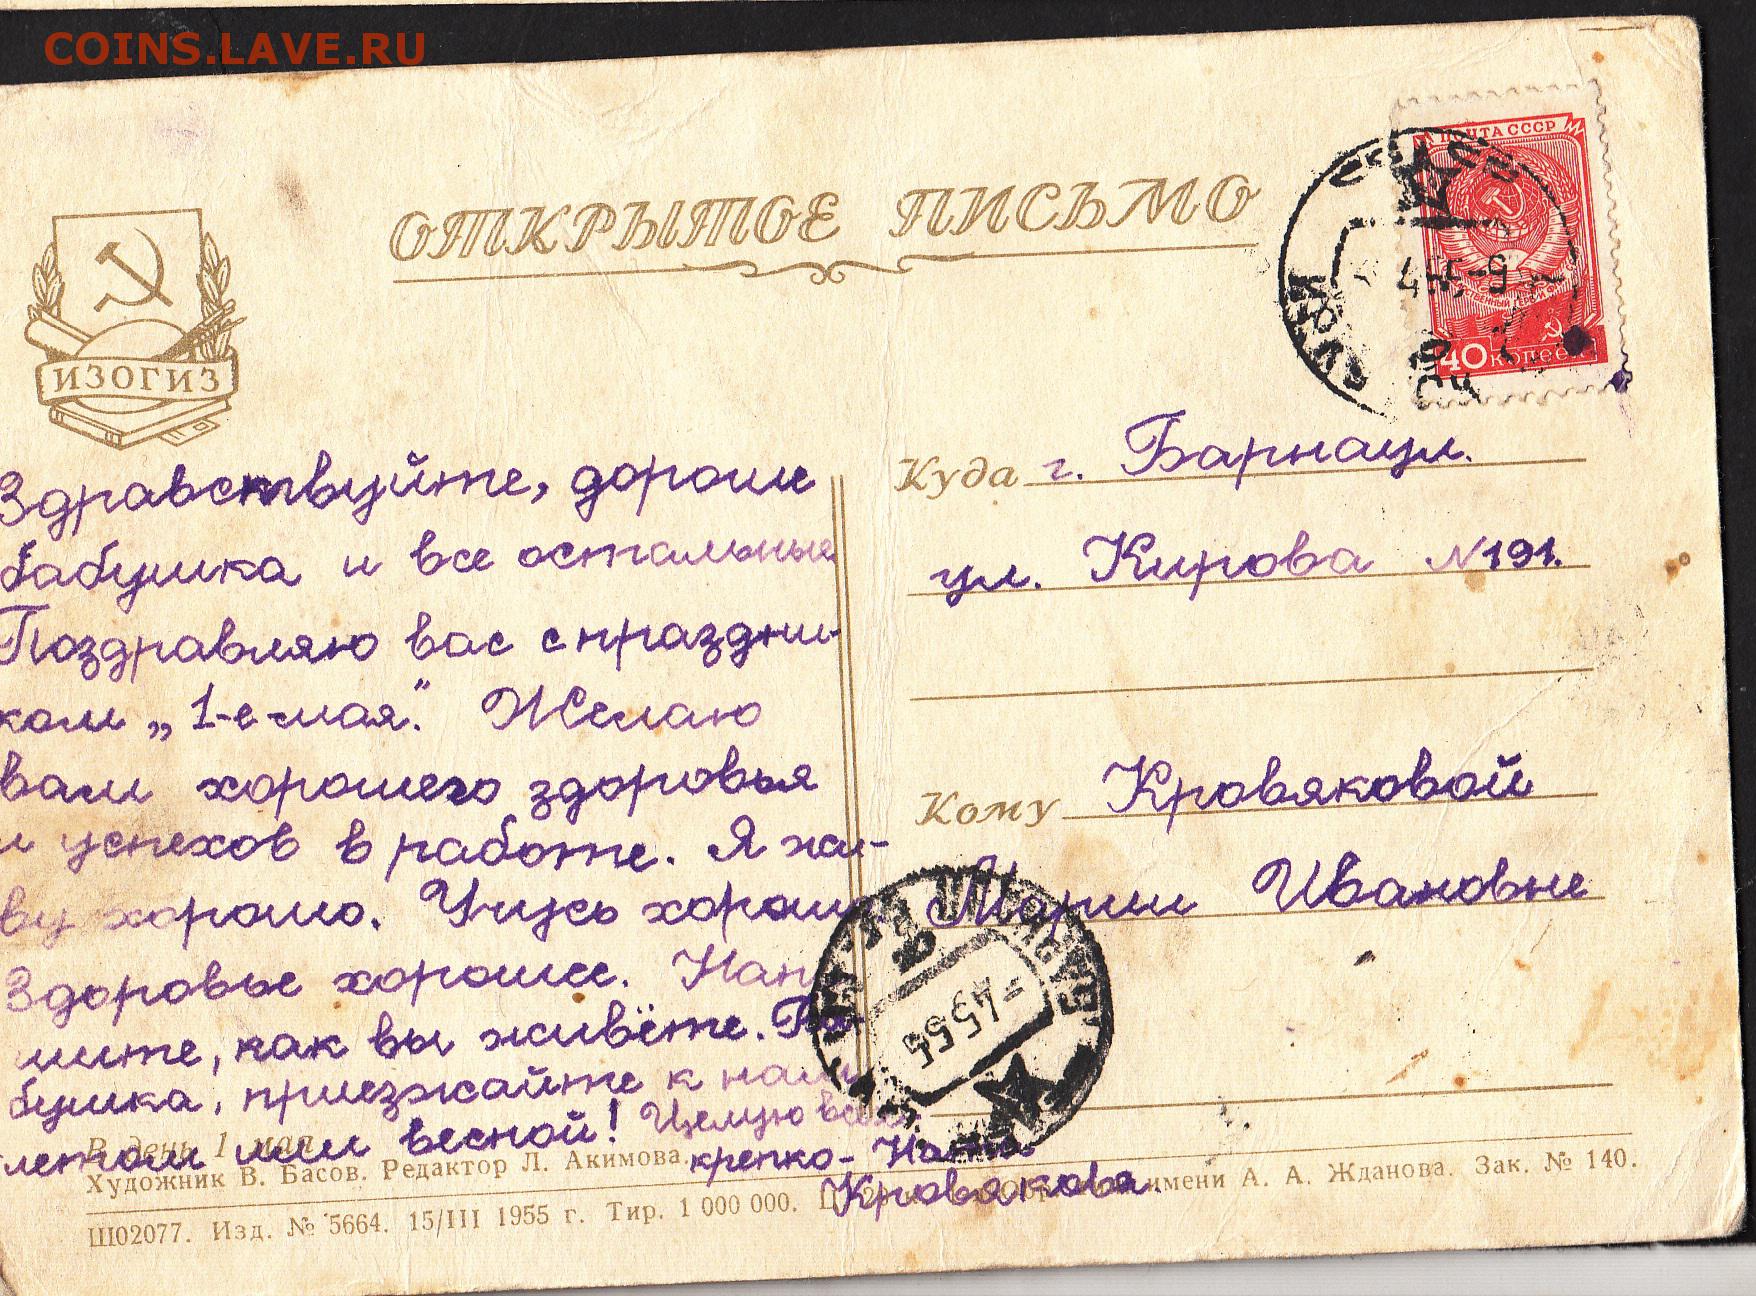 COINS.LAVE.RU
ПОЧТА СССР
40 копеек
ОТКРЫТОЕ ПИСЬМО
ИЗОГИЗ
Здравствуйте, дорогие
бабушка и все остальные
Поздравляю вас с праздни-
ком „1-е мая". Желаю
вам хорошего здоровья
и успехов в работе. Я жи-
ву хорошо. Учусь хорошо
Здоровье хорошее. Напи-
шите, как вы живёте. Ба-
бушка, приезжайте к нам
летом или весной! Целую вас
крепко - Ната
Кровякова.
Куда г. Барнаул.
ул. Кирова №191.
Кому Кровяковой
Марии Ивановне
В день 1 мая
Художник В. Басов. Редактор Л. Акимова.
Ш02077. Изд. № 5664. 15/III 1955 г. Тир. 1 000 000. имени А. А. Жданова. Зак. № 140.